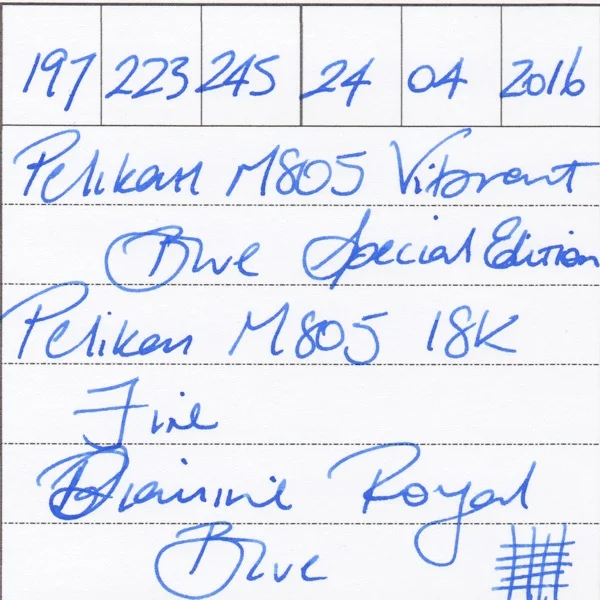 197 223 245 24 04 2016
Pelikan M805 Vibrant
Blue Special Edition
Pelikan M805 18K
Fine
Diamine Royal
Blue